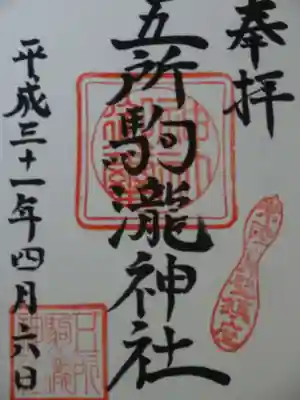 奉拝
五所駒瀧神社
平成三十一年四月六日